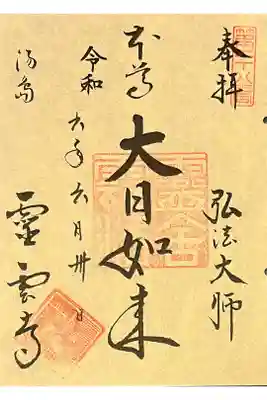 奉拝
弘法大師
本尊
大日如来
令和六年六月卅日
湯島
靈雲寺